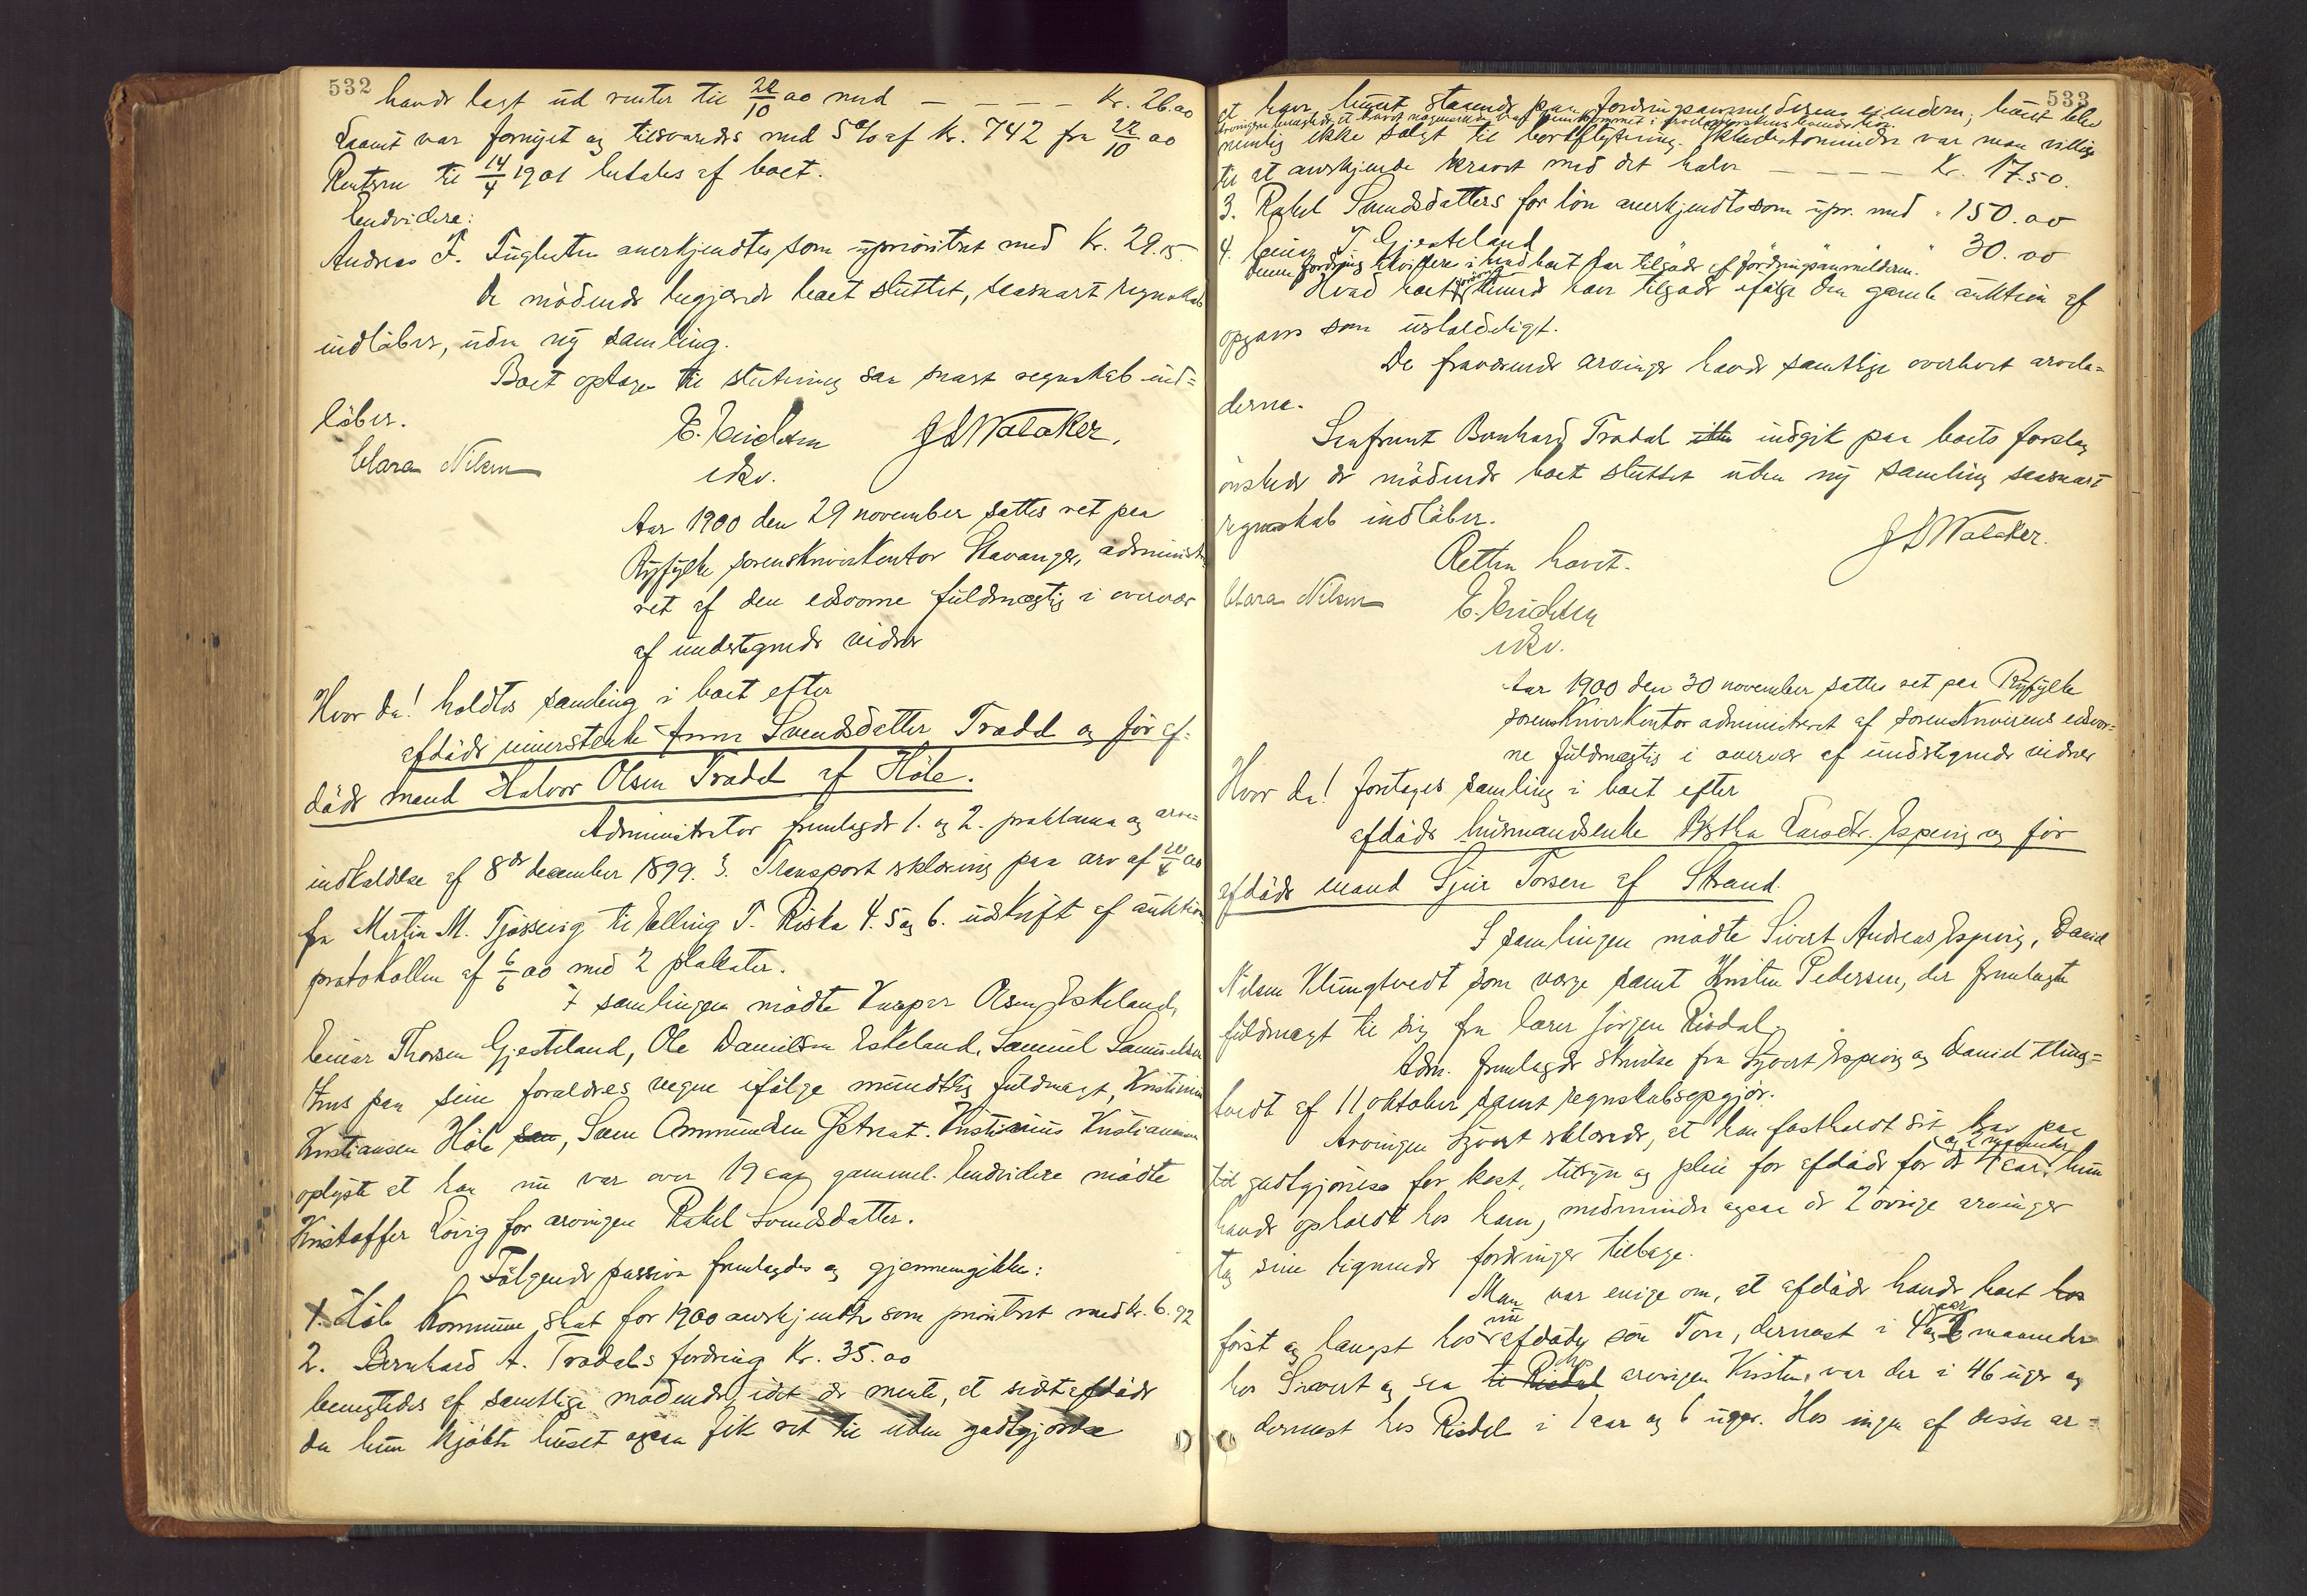 532
havde lagt ud renter til 22/10 00 med – – – – Kr. 26.00
Laanet var fornyet og tilsvaredes med 5 % af Kr. 742 fra 22/10 00
Renterne til 14/4 1901 betales af boet.
Endvidere:
Andreas F. anerkjendtes som uprioritret med Kr. 29.15.
De mødende begjærede boet sluttet, saasnart regnskab
indløber, uden ny samling.
Boet optages til slutning saa snart regnskab ind=
løber.
E. Erichsen J S Walaker.
Clara Nilsen
Aar 1900 den 29 november sattes ret paa
Ryfylke sorenskriverkontor Stavanger, administre
ret af den edsvorne fuldmægtig i overvær
af undertegnede vidner
Hvor da! holdtes samling i boet efter
afdøde Svendsdatter Tradal og før af=
døde mand Halvor Olsen Tradal af Høle.
Administrator fremlagde 1. og 2. proklama og arve=
indkaldelse af 8de december 1899. 3. Transport erklæring paa arv af 20/4 00
fra Martin M. Tjøssevig til Elling T. Riska 4. 5 og 6. udskrift af auktions
protokollen af 6/6 00 med 2 plakater.
I samlingen mødte Kasper Olsen Eskeland,
Einar Thorsen Gjesteland, Ole Danielsen Eskeland, Samuel Samuelsen
paa sine forældres vegne ifølge mundtlig fuldmagt, Kristinius
Kristiansen Høle, Sven Ommundsen. Kristinius Kristiansen
oplyste at han nu var over 19 aar gammel. Endvidere mødte
Kristoffer for arvingen Rakel Svendsdatter.
Følgende passiva fremlagdes og gjennemgikkes:
1. Høle Kommune skat for 1900 anerkjendtes som prioritret med Kr. 6.92
2. Bernhard A. Tradals fordring Kr. 35.00
benegtedes af samtlige mødende, idet de mente, at sidstafdøde
da hun kjøbte huset ogsaa fik ret til uden godtgjørelse
533
at have huset staaende paa fordringsanmelderens eiendom, huset blev
nemlig ikke solgt til bortflytning. Ikkedestomindre var man villige
til at anerkjende kravet med det halve – – – – Kr. 17.50.
3. Rakel Svendsdatters for løn anerkjendtes som upr. med " 150.00
4. Einar T. Gjesteland " 30.00
denne fordring i hvad boet har tilgode af fordringsanmelderen.
Hvad boet kunde have tilgode ifølge den gamle auktion af
opgaves som usholdeligt.
De fraværende arvinger havde samtlige overhørt arvela=
derne.
Senfremt Bernhard Tradal indgik paa boets forslag
ønskede de mødende boet sluttet uden ny samling saasnart
regnskab indløber.
Retten hævet. J S Walaker.
Clara Nilsen E. Erichsen
Aar 1900 den 30 november sattes ret paa Ryfylke
sorenskriverkontor administreret af sorenskriverens edsvor=
ne fuldmægtig i overvær af undertegnede vidner
Hvor da! foretoges samling i boet efter
afdøde husmandsenke Larsdtr. Espevig og før
afdøde mand Sjur Torsen af Strand.
I samlingen mødte Sivert Andreas Espevig, Daniel
Nilsen Klungtvedt som verge samt Kristen Pedersen, der fremlagte
fuldmagt til sig fra lærer Jørgen Risdal.
Adm. fremlagde skrivelse fra Syvert Espevig og Daniel Klung=
tvedt af 11 oktober samt regnskabsopgjør.
Arvingen Syvert erklærede, at han fastholdt sit krav paa
til godtgjørelse for kost, tilsyn og pleie for afdøde for de 4 aar og 2 maaneder, hun
havde opholdt hos ham, medmindre ogsaa de 2 øvrige arvinger
tog sine lignende fordringer tilbage.
Man var enige om, at afdøde havde boet hos
først og længst hos nu afdøde søn Tore, dernæst i 4 aar og maaneder
hos Sivert og saa til Risdal hos arvingen Kristen, var der i 46 uger og
dernæst hos Risdal i 1 aar og 6 uger. Hos ingen af disse ar=